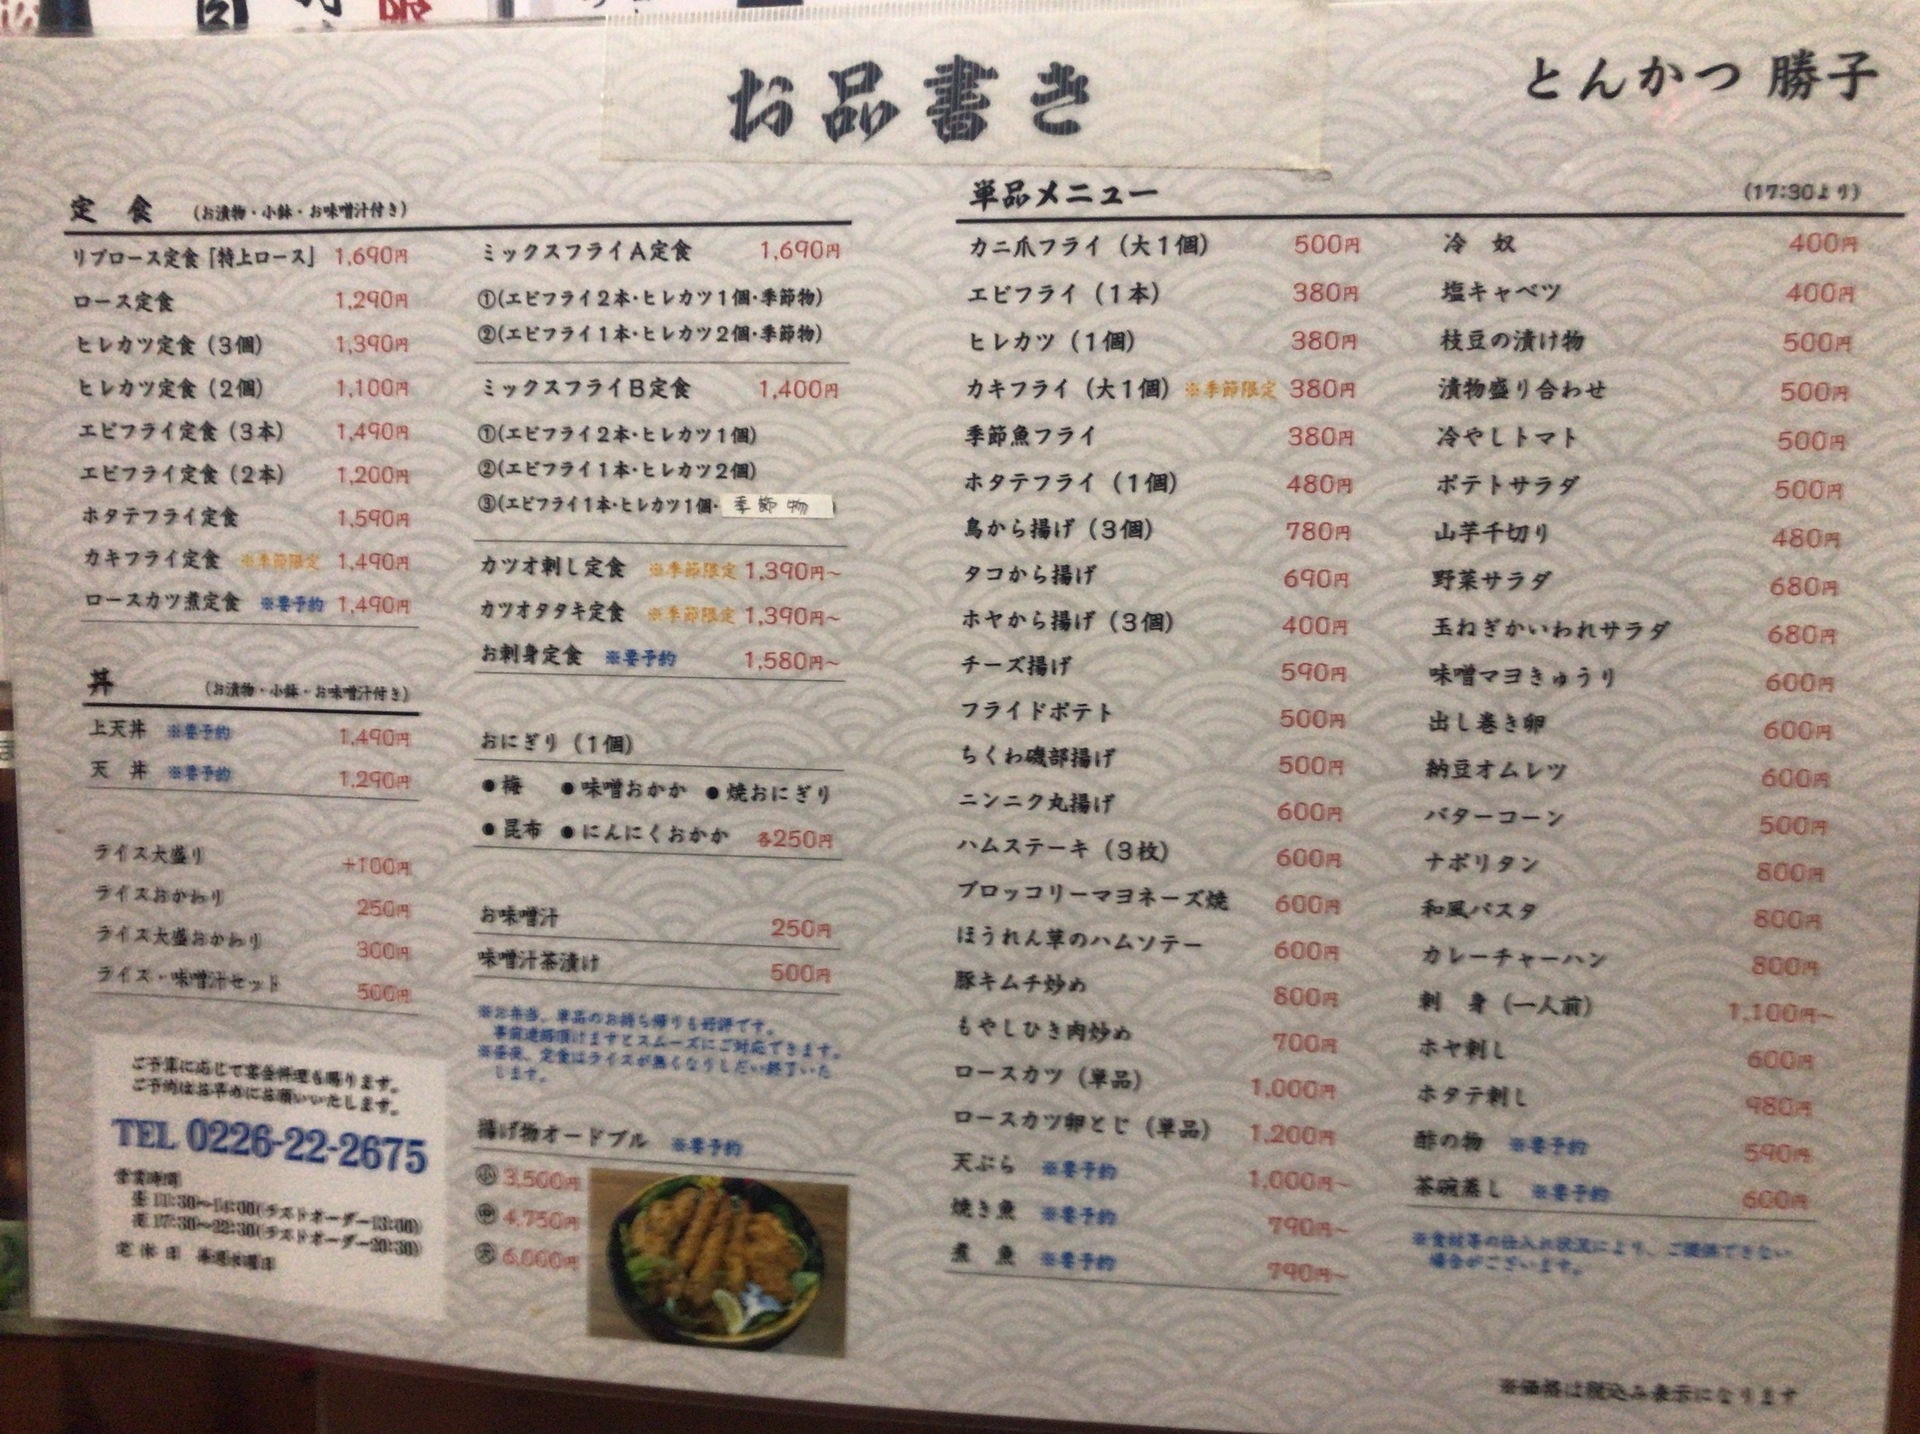 お品書き
とんかつ 勝子
定 食 (お漬物・小鉢・お味噌汁付き)
リブロース定食「特上ロース」 1,690円
ロース定食 1,290円
ヒレカツ定食(3個) 1,390円
ヒレカツ定食(2個) 1,100円
エビフライ定食(3本) 1,490円
エビフライ定食(2本) 1,200円
ホタテフライ定食 1,590円
カキフライ定食 ※季節限定 1,490円
ロースカツ煮定食 ※要予約 1,490円
丼 (お漬物・小鉢・お味噌汁付き)
上天丼 ※要予約 1,490円
天 丼 ※要予約 1,290円
ライス大盛り +100円
ライスおかわり 250円
ライス大盛おかわり 300円
ライス・味噌汁セット 500円
ご予算に応じて宴会料理も賜ります。
ご予約はお早めにお願いいたします。
TEL 0226-22-2675
営業時間
昼 11:30〜14:00(ラストオーダー13:00)
夜 17:30〜22:30(ラストオーダー20:30)
定 休 日 毎週水曜日
ミックスフライA定食 1,690円
①(エビフライ2本・ヒレカツ1個・季節物)
②(エビフライ1本・ヒレカツ2個・季節物)
ミックスフライB定食 1,400円
①(エビフライ2本・ヒレカツ1個)
②(エビフライ1本・ヒレカツ2個)
③(エビフライ1本・ヒレカツ1個・季節物)
カツオ刺し定食 ※季節限定 1,390円~
カツオタタキ定食 ※季節限定 1,390円~
お刺身定食 ※要予約 1,580円~
おにぎり(1個)
●梅 ●味噌おかか ●焼おにぎり
●昆布 ●にんにくおかか 各250円
お味噌汁 250円
味噌汁茶漬け 500円
※お弁当、単品のお持ち帰りも好評です。
事前連絡頂けますとスムーズにご対応できます。
※昼夜、定食はライスが無くなりしだい終了いた
します。
揚げ物オードブル ※要予約
小 3,500円
中 4,750円
大 6,000円
単品メニュー (17:30より)
カニ爪フライ(大1個) 500円
エビフライ(1本) 380円
ヒレカツ(1個) 380円
カキフライ(大1個) ※季節限定 380円
季節魚フライ 380円
ホタテフライ(1個) 480円
鳥から揚げ(3個) 780円
タコから揚げ 690円
ホヤから揚げ(3個) 400円
チーズ揚げ 590円
フライドポテト 500円
ちくわ磯部揚げ 500円
ニンニク丸揚げ 600円
ハムステーキ(3枚) 600円
ブロッコリーマヨネーズ焼 600円
ほうれん草のハムソテー 600円
豚キムチ炒め 800円
もやしひき肉炒め 700円
ロースカツ(単品) 1,000円
ロースカツ卵とじ(単品) 1,200円
天ぷら ※要予約 1,000円~
焼き魚 ※要予約 790円~
煮 魚 ※要予約 790円~
冷 奴 400円
塩キャベツ 400円
枝豆の漬け物 500円
漬物盛り合わせ 500円
冷やしトマト 500円
ポテトサラダ 500円
山芋千切り 480円
野菜サラダ 680円
玉ねぎかいわれサラダ 680円
味噌マヨきゅうり 600円
出し巻き卵 600円
納豆オムレツ 600円
バターコーン 500円
ナポリタン 800円
和風パスタ 800円
カレーチャーハン 800円
刺 身(一人前) 1,100円~
ホヤ刺し 600円
ホタテ刺し 980円
酢の物 ※要予約 590円
茶碗蒸し ※要予約 600円
※食材等の仕入れ状況により、ご提供できない
場合がございます。
※価格は税込み表示になります